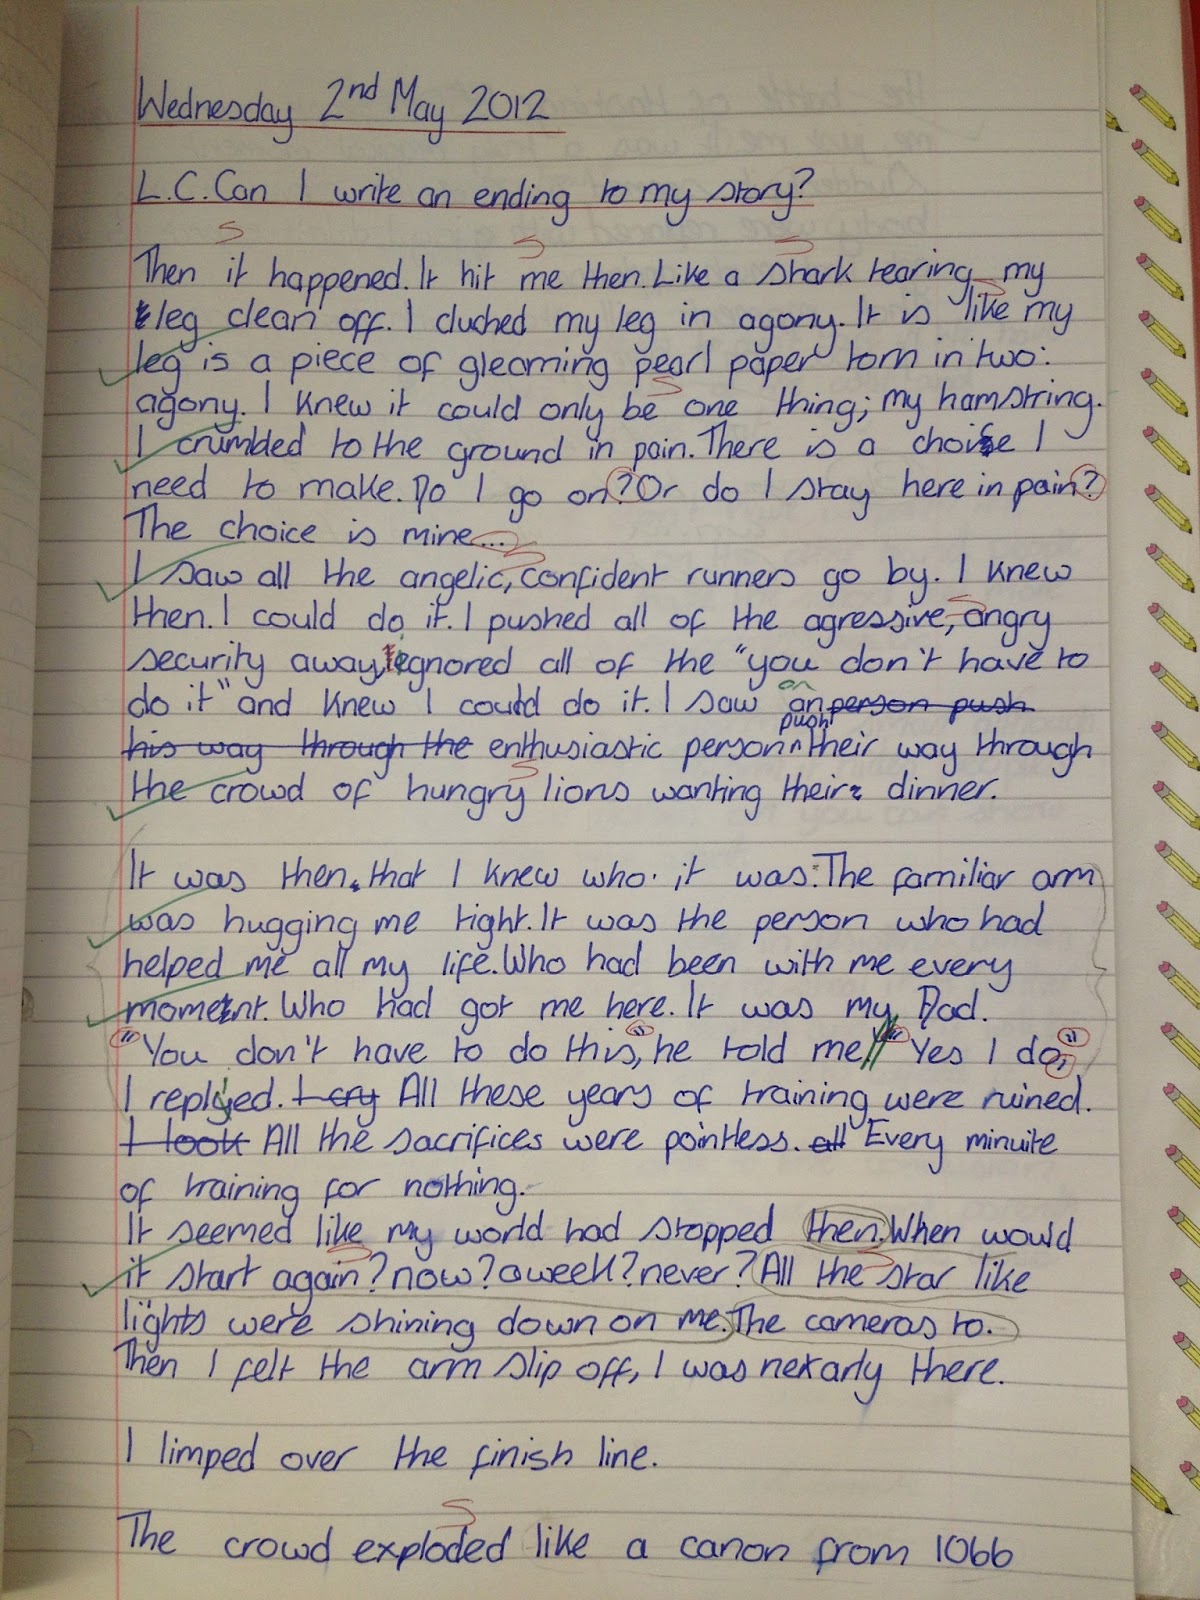 Wednesday 2nd May 2012
L.C. Can I write an ending to my story?
Then it happened. It hit me then. Like a shark tearing my
leg clean off. I cluched my leg in agony. It is like my
leg is a piece of gleaming pearl paper torn in two:
agony. I knew it could only be one thing; my hamstring.
I crumbled to the ground in pain. There is a choise I
need to make. Do I go on? Or do I stay here in pain?
The choice is mine...
I saw all the angelic, confident runners go by. I knew
then. I could do it. I pushed all of the agressive, angry
security away, egnored all of the "you don't have to
do it" and knew I could do it. I saw an person push
on
push
his way through the enthusiastic person ^ their way through
the crowd of hungry lions wanting their dinner.
It was then, that I knew who it was. The familiar arm
was hugging me tight. It was the person who had
helped me all my life. Who had been with me every
moment. Who had got me here. It was my Dad.
"You don't have to do this," he told me. // "Yes I do,"
I replyed. I cry All these years of training were ruined.
I look All the sacrifices were pointless. all Every minuite
of training for nothing.
It seemed like my world had stopped then. When would
it start again? now? a week? never? All the star like
lights were shining down on me. The cameras to.
Then I felt the arm slip off, I was nearly there.
I limped over the finish line.
The crowd exploded like a canon from 1066